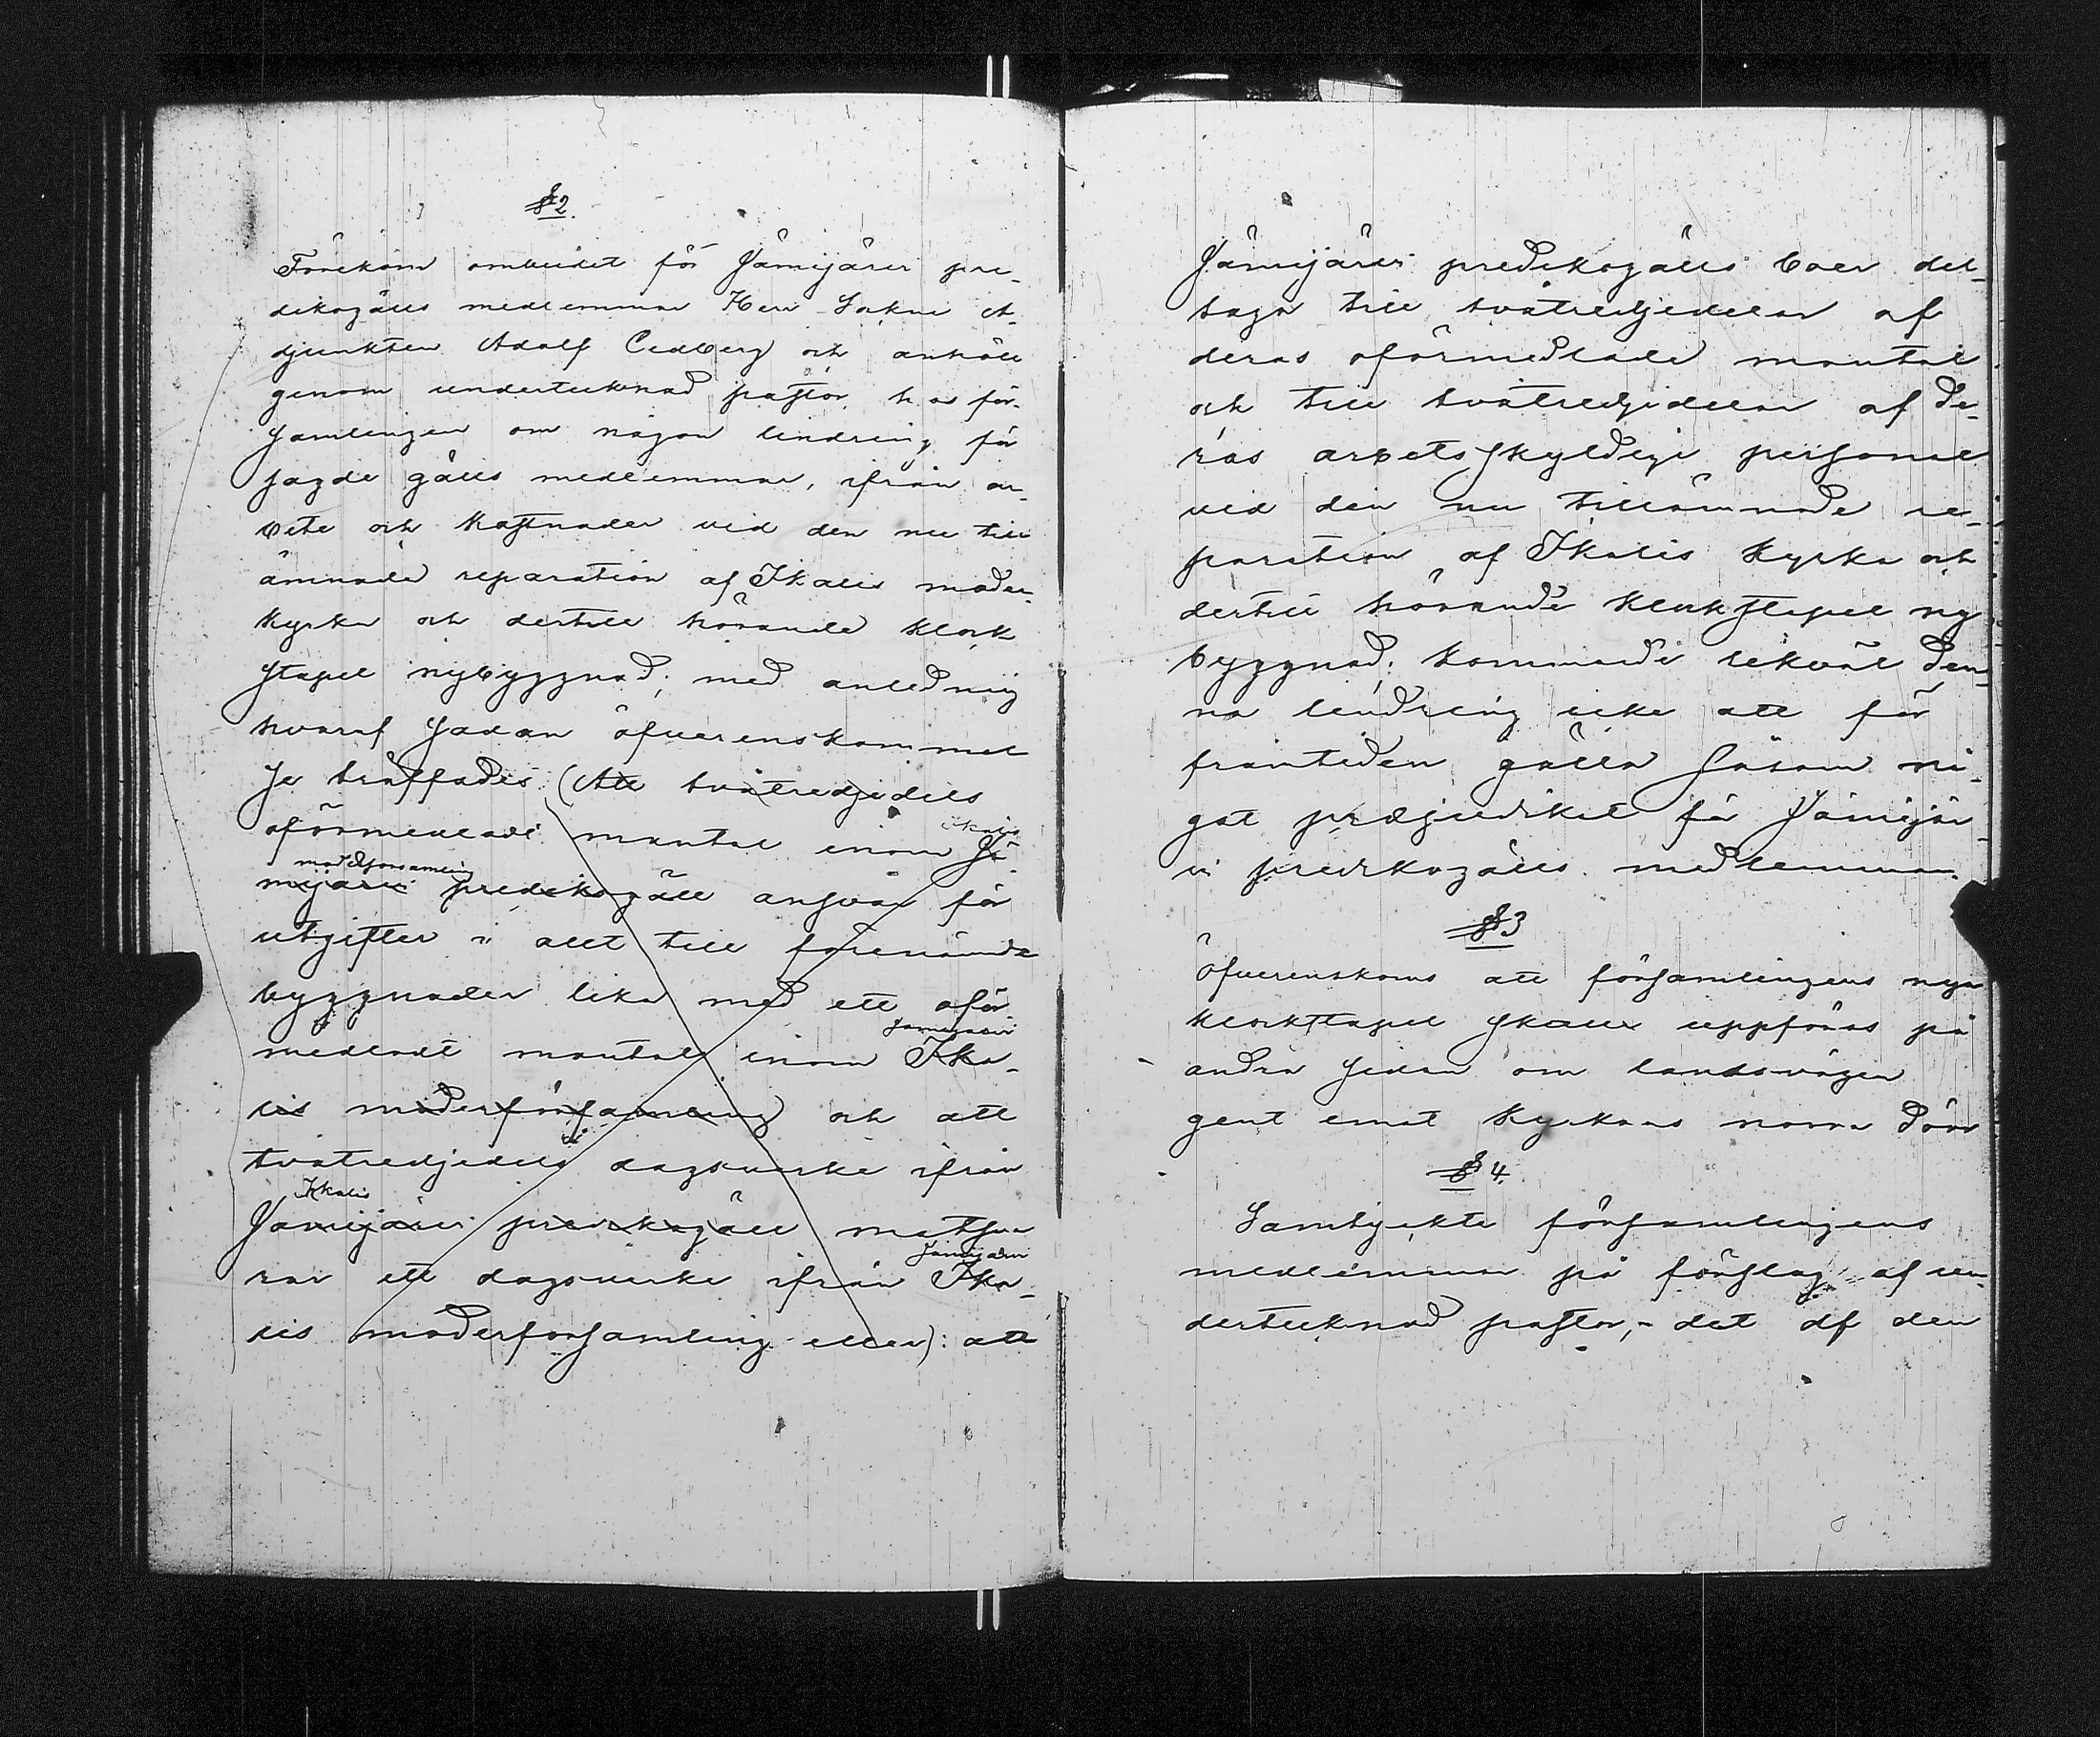 §2.
Förekom ombudet för Jämijärvi pre-
dikogälls medlemmar Herr Sockne A-
djunkten Adolf Cedberg och anhöll
genom undertecknad pastor hos för-
samlingen om någon lindring för
sagde gälls medlemmar, ifrån ar-
bete och kostnader vid den nu till
ämnade reparation af Ikalis moder-
kyrka och dertill hörande klock
stapel nybyggnad; med anledning
hvaraf sadan öfverenskommel
se träffades: (Att tvåtredjedels
oförmedladt mantal inom Jä- Ikalis
mijärvi predikogäll ansvar för moderförsamling
utgifter i allt till förenämnde
byggnader lika med ett oför
medladt mantal inom Ika- Jämijärvi
lis moderförsamling och att
tvåtredjedels dagsverke ifrån
Jämijärvi predikogäll motsva Ikalis
rar ett dagsverke ifrån Ika- Jämijärvi
lis moderförsamling eller): att
Jämijärvi predikogälls boer del-
taga till tvåtredjedelar af
deras oförmedlade mantal
och till tvåtredjedelar af de-
ras arbetsskyldige personal
vid den nu tillämnade re-
paration af Ikalis kyrka och
dertill hörande klockstapel ny
byggnad; kommande likväl den-
na lindring icke att för
framtiden gälla såsom nå-
got præjudikat för Jämijär-
vi predikogälls medlemmar.
§3
Öfverenskoms att församlingens nya
klockstapel skall uppföras på
andra sidan om landsvägen
gent emot kyrkans norra dörr
§4.
Samtyckte församlingens
medlemmar på förslag af un-
dertecknad pastor, det af den